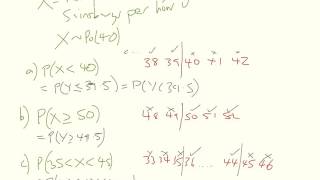 Sainsburys per hour
X~Po(40)
a) P(X<40) 38 39 40 41 42
= P(Y≤39.5) = P(Y<39.5)
b) P(X≥50) 48 49 50 51 52
= P(Y≥49.5)
c) P(35<X<45) 33 34 35 36 .... 44 45 46